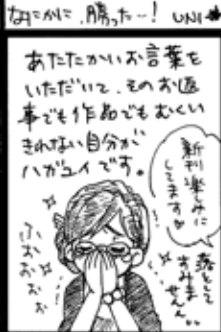 なにかに、勝った…! UNI
あたたかいお言葉を
いただいて、そのお返
事でも作品でもむくい
きれない自分が
ハガユイです。
新刊楽みに
してます
落として
すみま
せんん。
ふおおおぉぉ